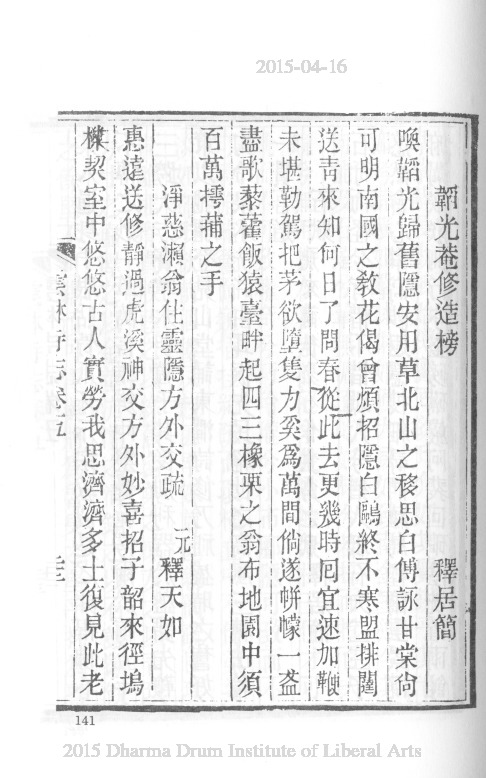 2015-04-16
韜光菴修造榜　釋居簡
喚韜光歸舊隱安用草北山之移思白傅詠甘棠尙
可明南國之敎花偈曾煩招隱白鷗終不寒盟排闥
送青來知何日了問春從此去更幾時囘宜速加鞭
未堪勒駕把茅欲墮隻力奚爲萬間倘遂帡幪一盋
盡歌藜藿飯猿臺畔起四三橡栗之翁布地園中須
百萬摴蒱之手
淨慈瀨翁住靈隱方外交疏　元釋天如
惠遠送修靜過虎溪神交方外妙喜招子韶來徑塢
櫟契室中悠悠古人實勞我思濟濟多士復見此老
雲林寺志卷五
141
2015 Dharma Drum Institute of Liberal Arts